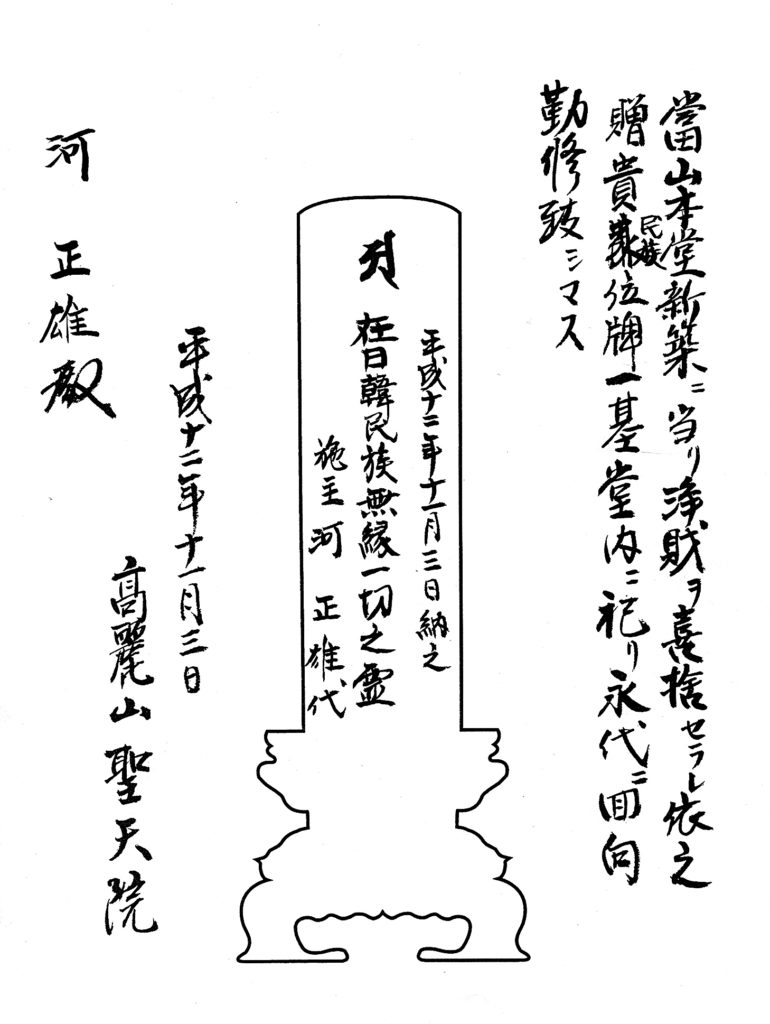 當山本堂新築ニ当リ浄財ヲ喜捨セラレ依之
贈貴民族位牌一基堂内ニ祀リ永代ニ回向
勤修致シマス
平成十二年十一月三日納之
在日韓民族無縁一切之霊
施主 河 正雄代
平成十二年十一月三日
高麗山聖天院
河 正雄殿